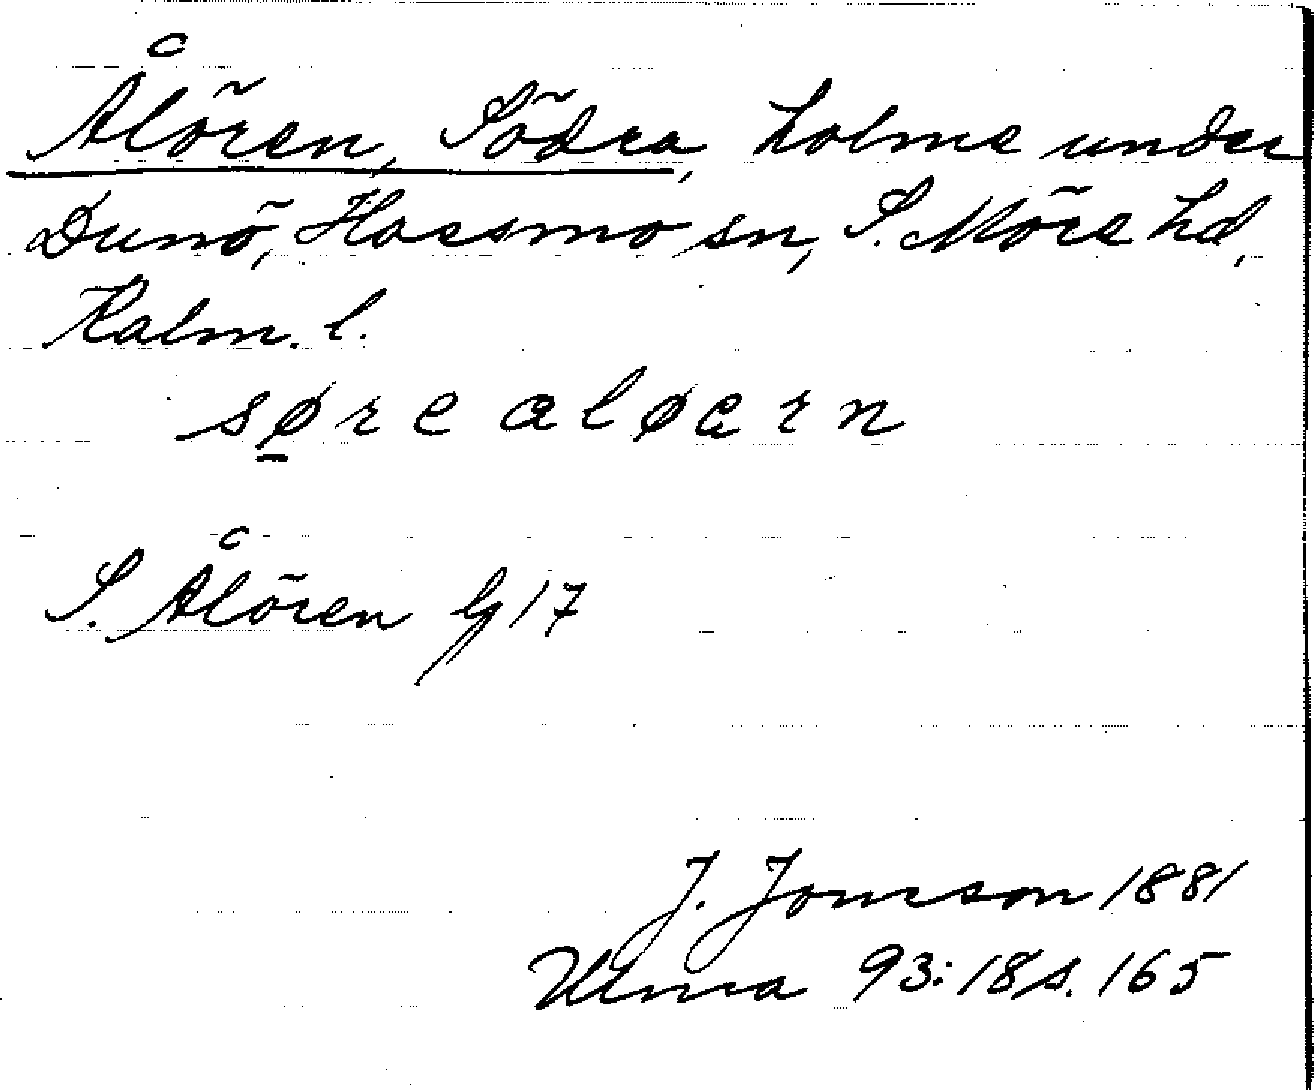 Ålören, Södra, holme under
Dunö, Hossmo sn, S. Möre hd,
Kalm. l.
søre aløern
S. Ålören G 17
J. Jonsson 1881
Ulma 93:18 s. 165